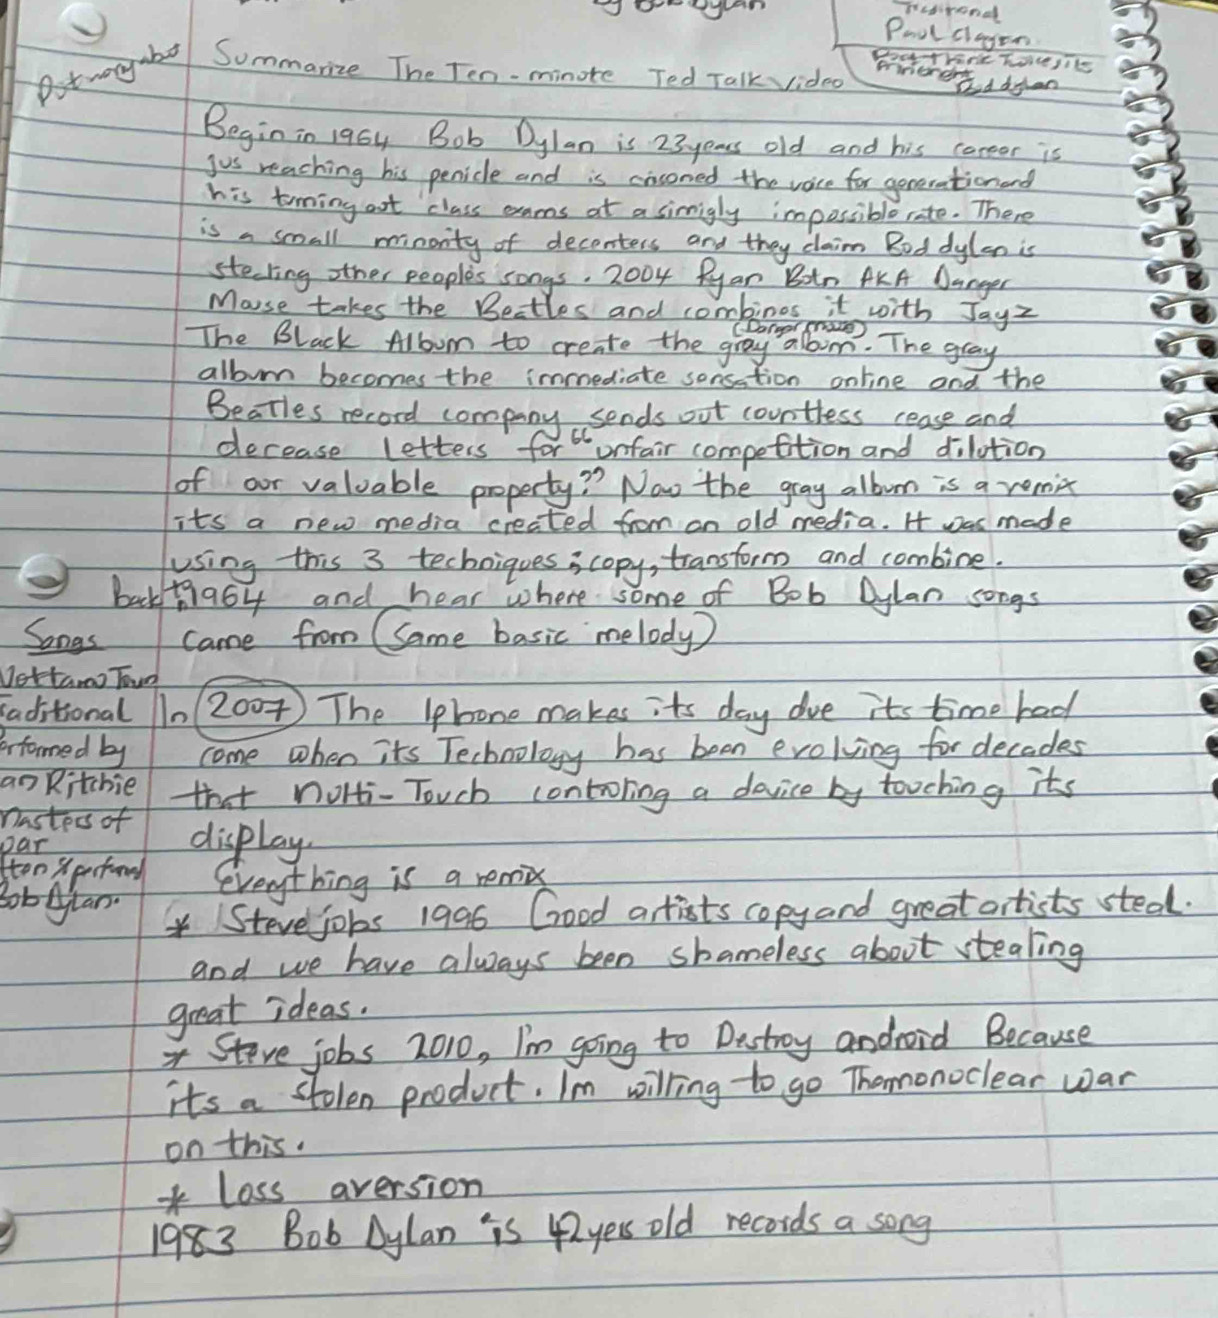 by Bob Dylan
Paul Clayton
Summarize The Ten-minute Ted Talk video
Begin in 1964 Bob Dylan is 23 years old and his career is
jus reaching his penicle and is the voice for generation and
his turning out class exams at a simigly impossible rate. There
is a small minority of decenters and they claim Bod dylan is
stealing other people's songs. 2004 AKA Danger
Mouse takes the Beatles and combines it with Jay Z
(Danger mouse)
The Black Album to create the gray album. The gray
album becomes the immediate sensation online and the
Beatles record company sends out countless cease and
decease letters for "unfair competition and dilution
of our valuable property?" Now the gray album is a remix
its a new media created from an old media. It was made
using this 3 techniques; copy, transform and combine.
back to 1964 and hear where some of Bob Dylan songs
came from (same basic melody)
Songs
Town
aditional
erformed by
an Ritchie
masters of
bob Dylan.
In 2007 The Iphone makes its day due its time had
come when its Technology has been evolving for decades
that Multi-Touch controling a device by touching its
display.
Everything is a remix
* Steve jobs 1996 Good artists copy and great artists steal.
and we have always been shameless about stealing
great ideas.
* Steve jobs 2010, I'm going to Destroy android Because
its a stolen product. Im willing to go Thermonuclear war
on this.
* Loss aversion
1983 Bob Dylan is 42 yers old records a song